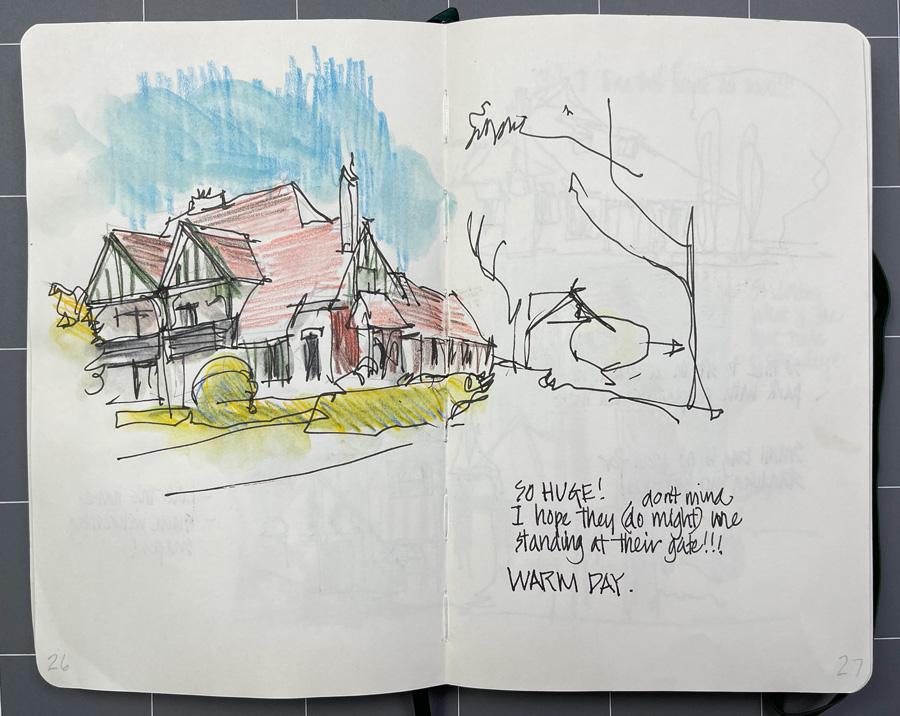 SO HUGE!
don't mind
I hope they (do might) me
standing at their gate!!!
WARM DAY.
26
27